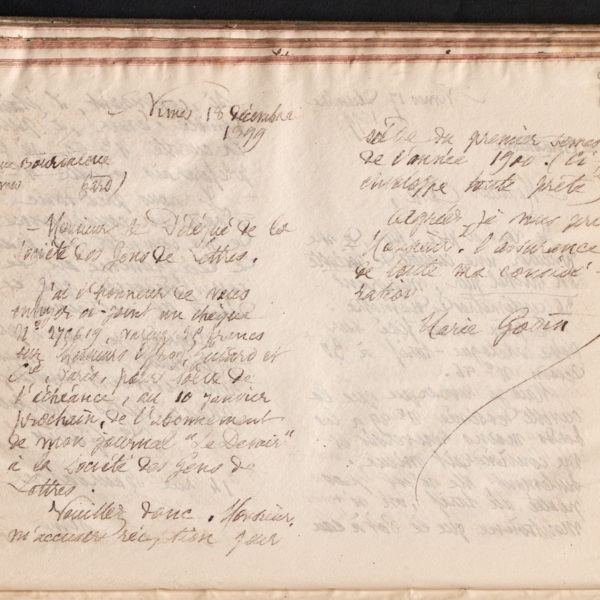 Nimes 18 décembre
1899
rue Bourdaloue
Gard)
Monsieur le Délégué de la
Société des Gens de Lettres.
J'ai l'honneur de vous
envoyer ci-joint un chèque
N° 270619, valeur francs
sur Messieurs et
Cie, Paris, pour solde de
l'échéance, au 10 janvier
prochain, de l'abonnement
de mon journal "Le Devoir"
à la Société des Gens de
Lettres.
Veuillez donc, Monsieur,
m'accuser réception pour
solde du premier semes
de l'année 1900 (Ci
enveloppe toute prête)
Agréez, je vous pr
Monsieur, l'assurance
de toute ma considé-
ration
Marie Godin